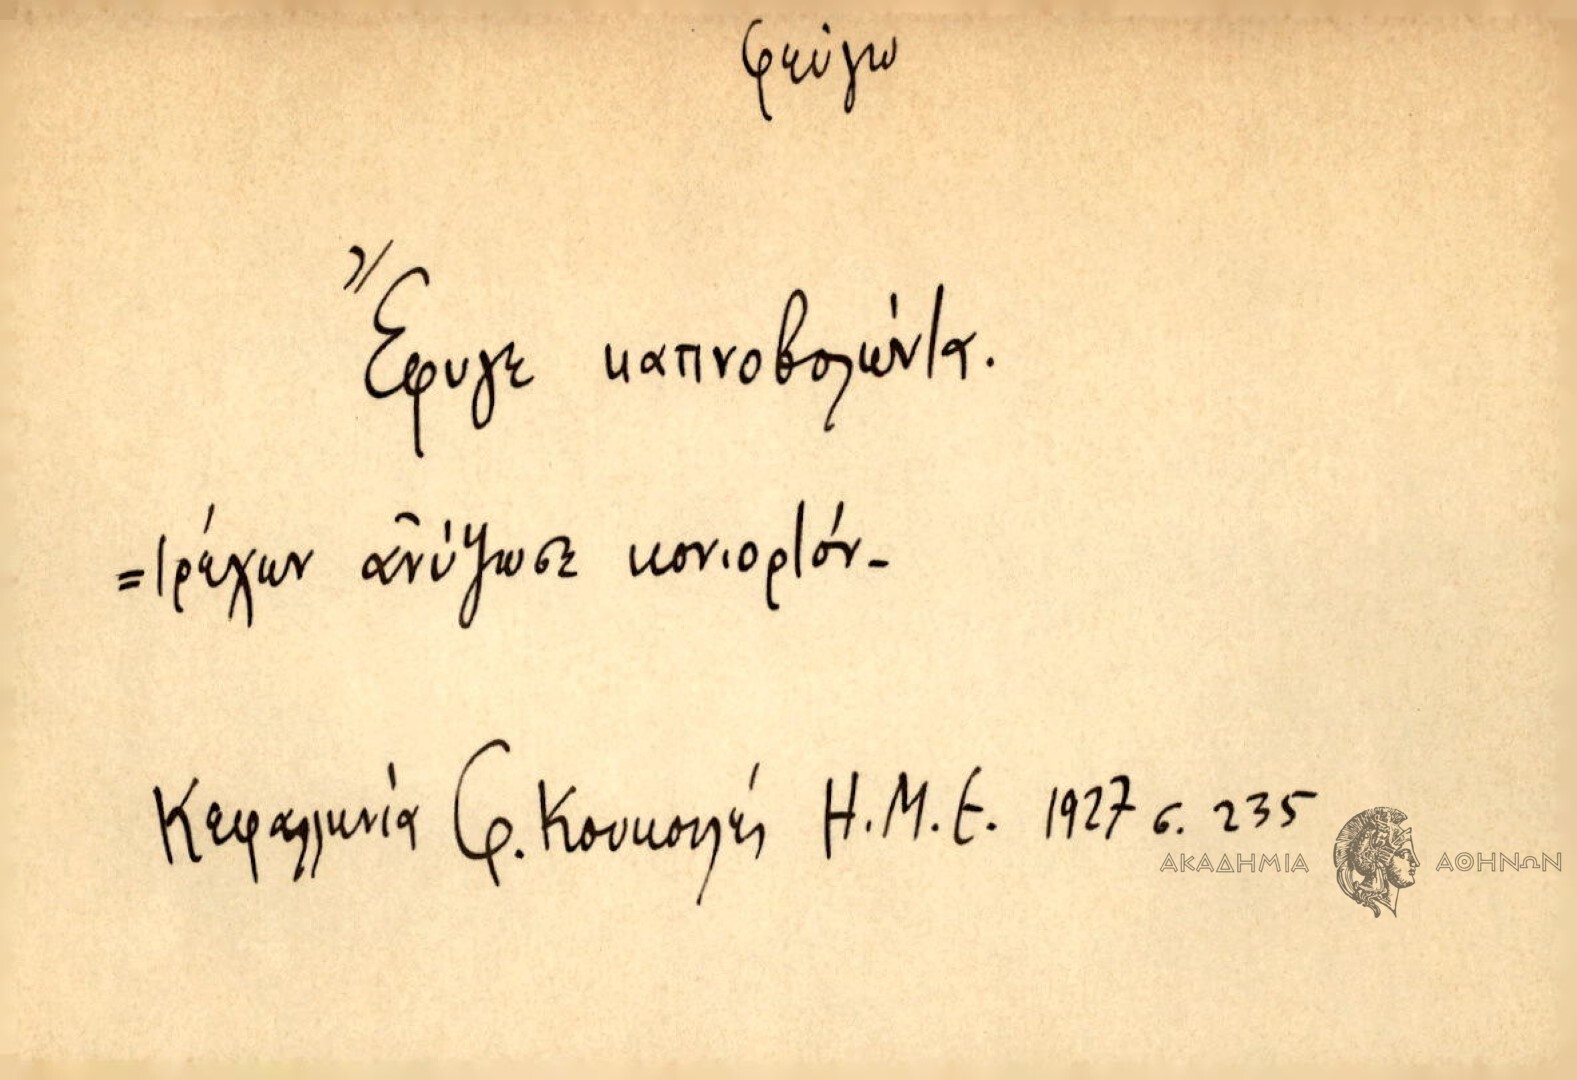 φεύγω
Ἔφυγε καπνοβολώντα.
=τρέχων ἀνύψωσε κονιορτόν-
Κεφαλληνία Φ. Κουκουλές Η.Μ.Ε. 1927 σ. 235
ΑΚΑΔΗΜΙΑ ΑΘΗΝΩΝ